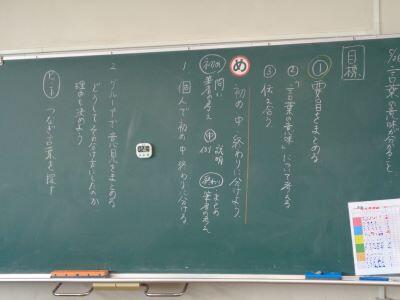 言葉の意味が分かること
目標
① 要旨をまとめる
② 「言葉の意味」について考える
③ 伝え合う
め 初め 中 終わりに分けよう
初め 問い 筆者の考え 中 説明 例 終わり まとめ 筆者の考え
1. 個人で初め 中 終わりに分ける
2. グループで意見をまとめる
どうしてその分け方にしたのか
理由も決めよう
つなぎ言葉を探す